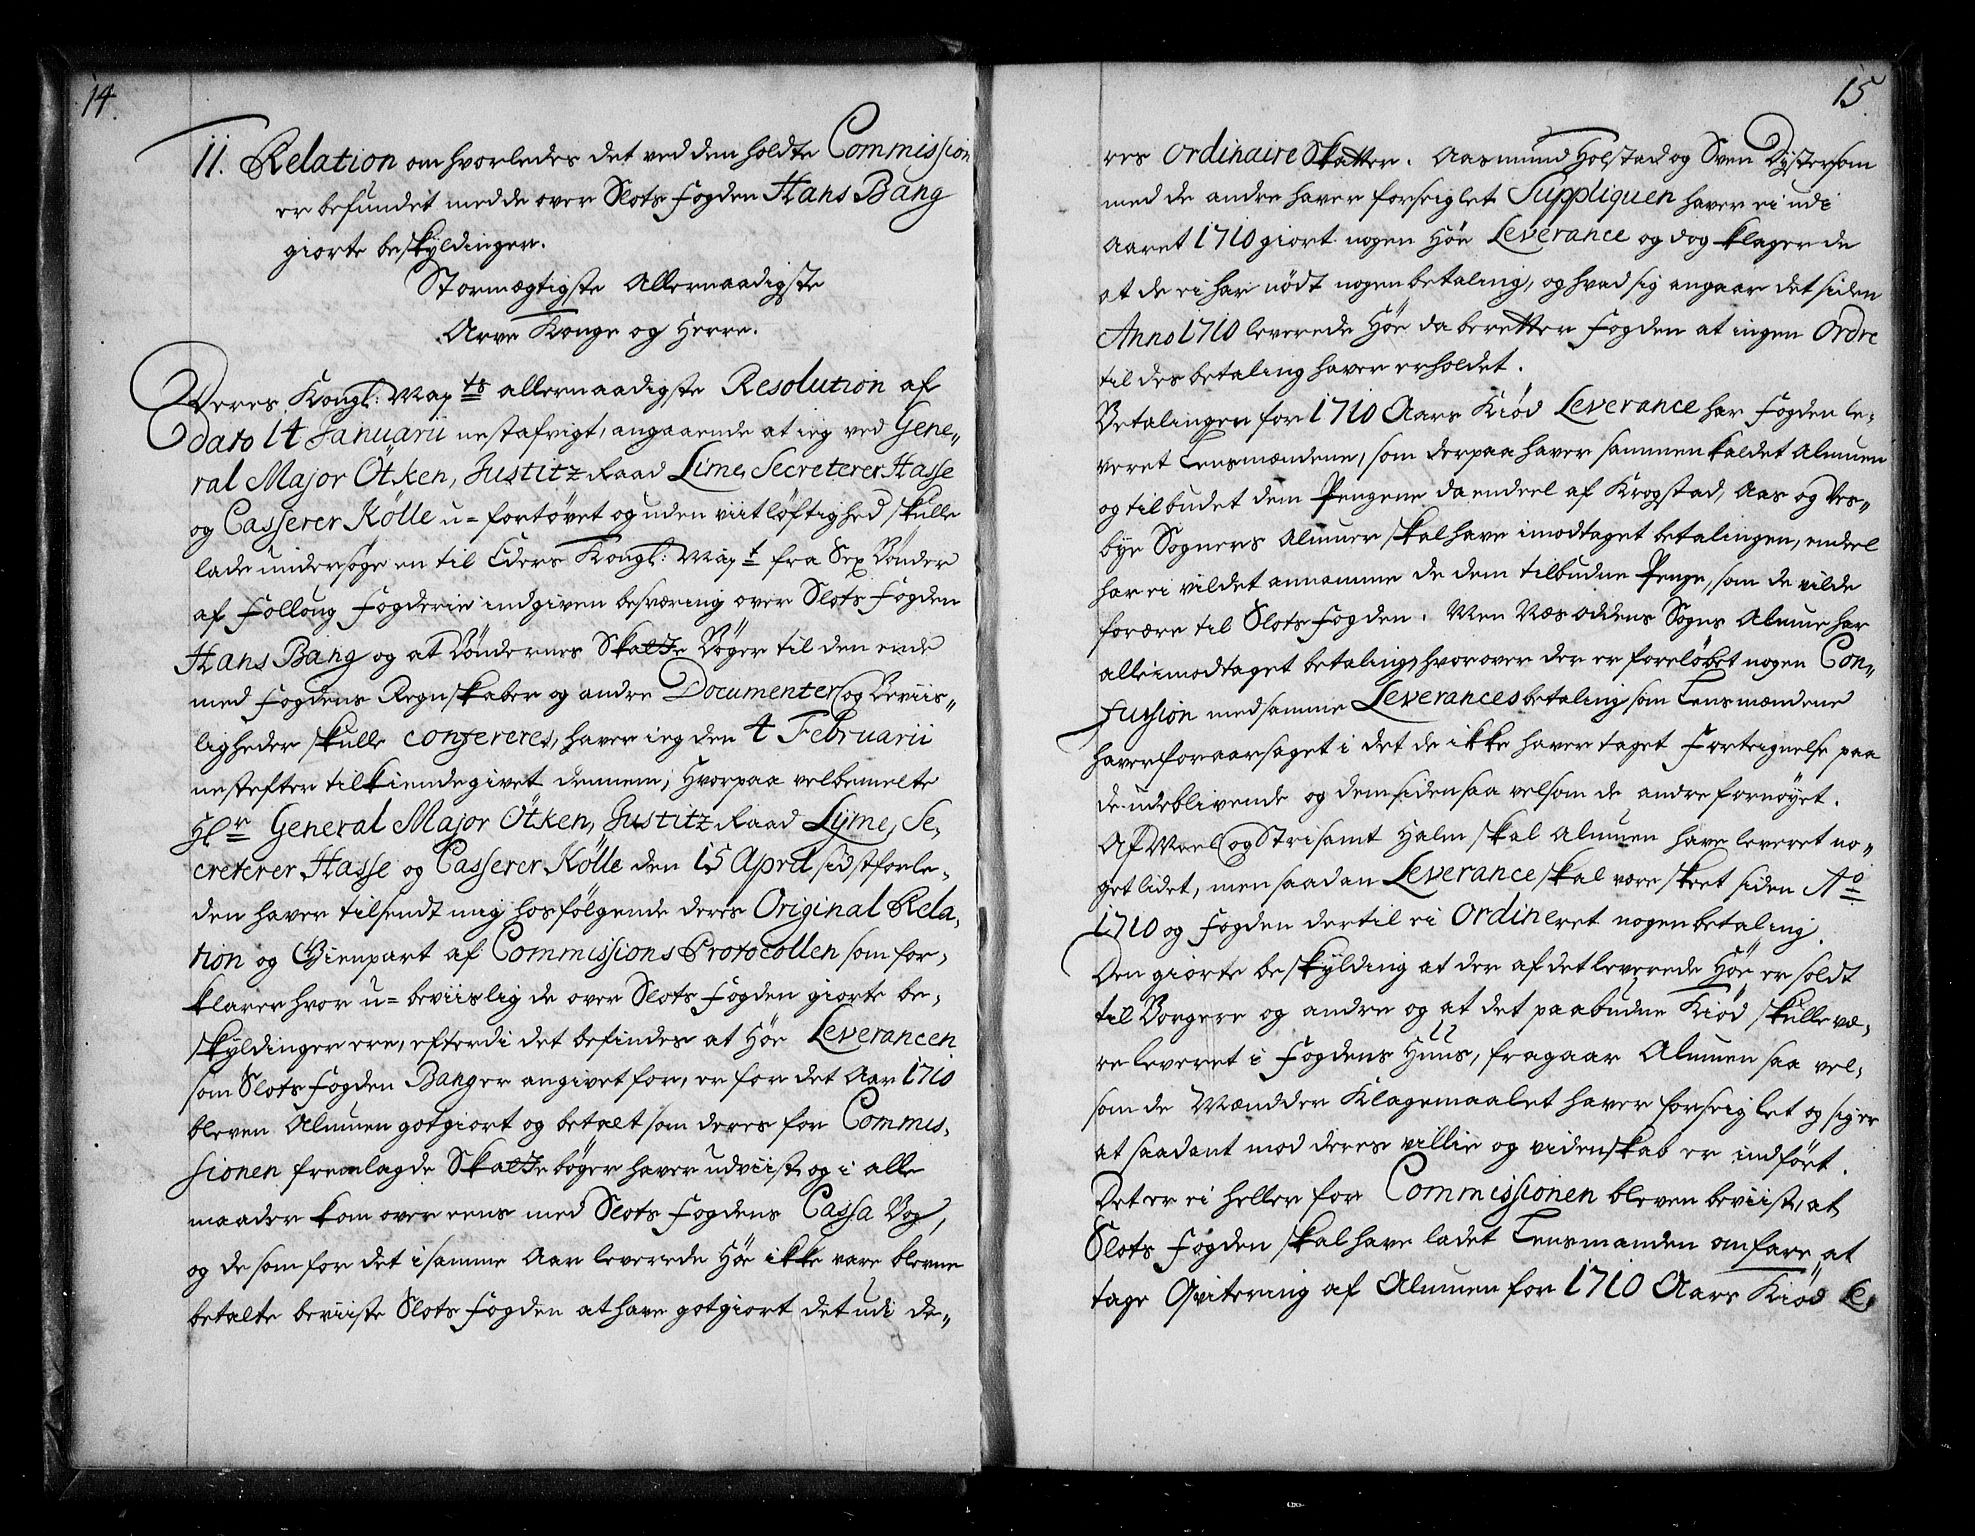 14.
11. Relation om hvorledes det ved den holdte Commission
er befundet med de over Slots Fogden Hans Bang
giorte beskyldinger.
Stormægtigste Allernaadigste
Arve Konge og Herre.
Deres Kongl: Mayts allernaadigste Resolution af
dato 14 Januarii nestafvigt, angaaende at ieg ved Gene„
ral Major Ötken, Justitz Raad Lime, Secreterer Hasse
og Casserer Kölle u= fortøvet og uden viitløftighed skulle
lade undersøge en til Eders Kongl: Mayt fra Sex Bønder
af Folloug Fogderie indgiven besværing over Slots Fogden
Hans Bang og at Bøndernes Skatte Bøger til den ende
med Fogdens Regnskaber og andre Documenter og Beviis„
ligheder skulle confereres, haver ieg den 4 Februarii
nestefter tilkiendegivet dennem; Hvorpaa velbemelte
Hr General Major Ötken, Justitz Raad Lyme, Se„
creterer Hasse og Casserer Kölle den 15 April sidstforle„
den haver tilsendt mig hosfølgende deres Original Rela„
tion og Gienpart af Commissions Protocollen som for„
klarer hvor u= beviislig de over Slots Fogden giorte be„
skyldinger ere, efterdi det befindes at Høe Leverancen
som Slots Fogden Bang er angivet for, er for det Aar 1710
bleven Almuen gotgiort og betalt som deres for Commis„
sionen fremlagde Skatte bøger haver udviist, og i alle
maader kom over eens med Slots Fogdens Cassa Bog,
og de som for det i samme Aar leverede Høe ikke vare blevne
betalte beviiste Slots Fogden at have gotgiort det udi de„
15
res ordinaire Skatter. Aasmund Holstad og Sven Dyster som
med de andre haver forseiglet Suppliquen haver ei udi
Aaret 1710 giort nogen Høe Leverance og dog klager de
at de ei har nødt nogen betaling, og hvad sig angaar det siden
Anno 1710 leverede Høe da beretter Fogden at ingen Ordre
til des betaling haver erholdet.
Betalingen for 1710 Aars Kiød Leverance har Fogden le„
veret Lensmændene, som derpaa haver sammenkaldet Almuen
og tilbudet dem Pengene da endeel af Krogstad, Aas og Ves„
bye Sogners Almue skal have imodtaget betalingen, endeel
har ei vildet annamme de dem tilbudne Penge, som de vilde
forære til Slots Fogden. Men Næsoddens Sogns Almue har
alle imodtaget betaling, hvorover der er foreløbet nogen Con„
fusion med samme Leverances betaling som Lensmændene
haver foraarsaget i det de ikke haver taget Forteignelse paa
de udeblivende og dem siden saavelsom de andre fornøyet.
Af Meel og Strisamt Halm skal Almuen have leveret no„
get lidet, men saadan Leverance skal være skeet siden Ao
1710 og Fogden dertil ei Ordineret nogen betaling.
Den giorte beskylding at der af det leverede Høe er soldt
til Borgere og andre og at det paabudne Kiød skulle væ„
re leveret i Fogdens Huus, fragaar Almuen saa vel„
som de Mænd der Klagemaalet haver forseiglet og siger
at saadant mod deres villie og videnskab er indført.
Det er ei heller for Commissionen bleven beviist, at
Slots Fogden skal have ladet Lensmanden omfare at
tage Qvitering af Almuen for 1710 Aars Kiød Le„